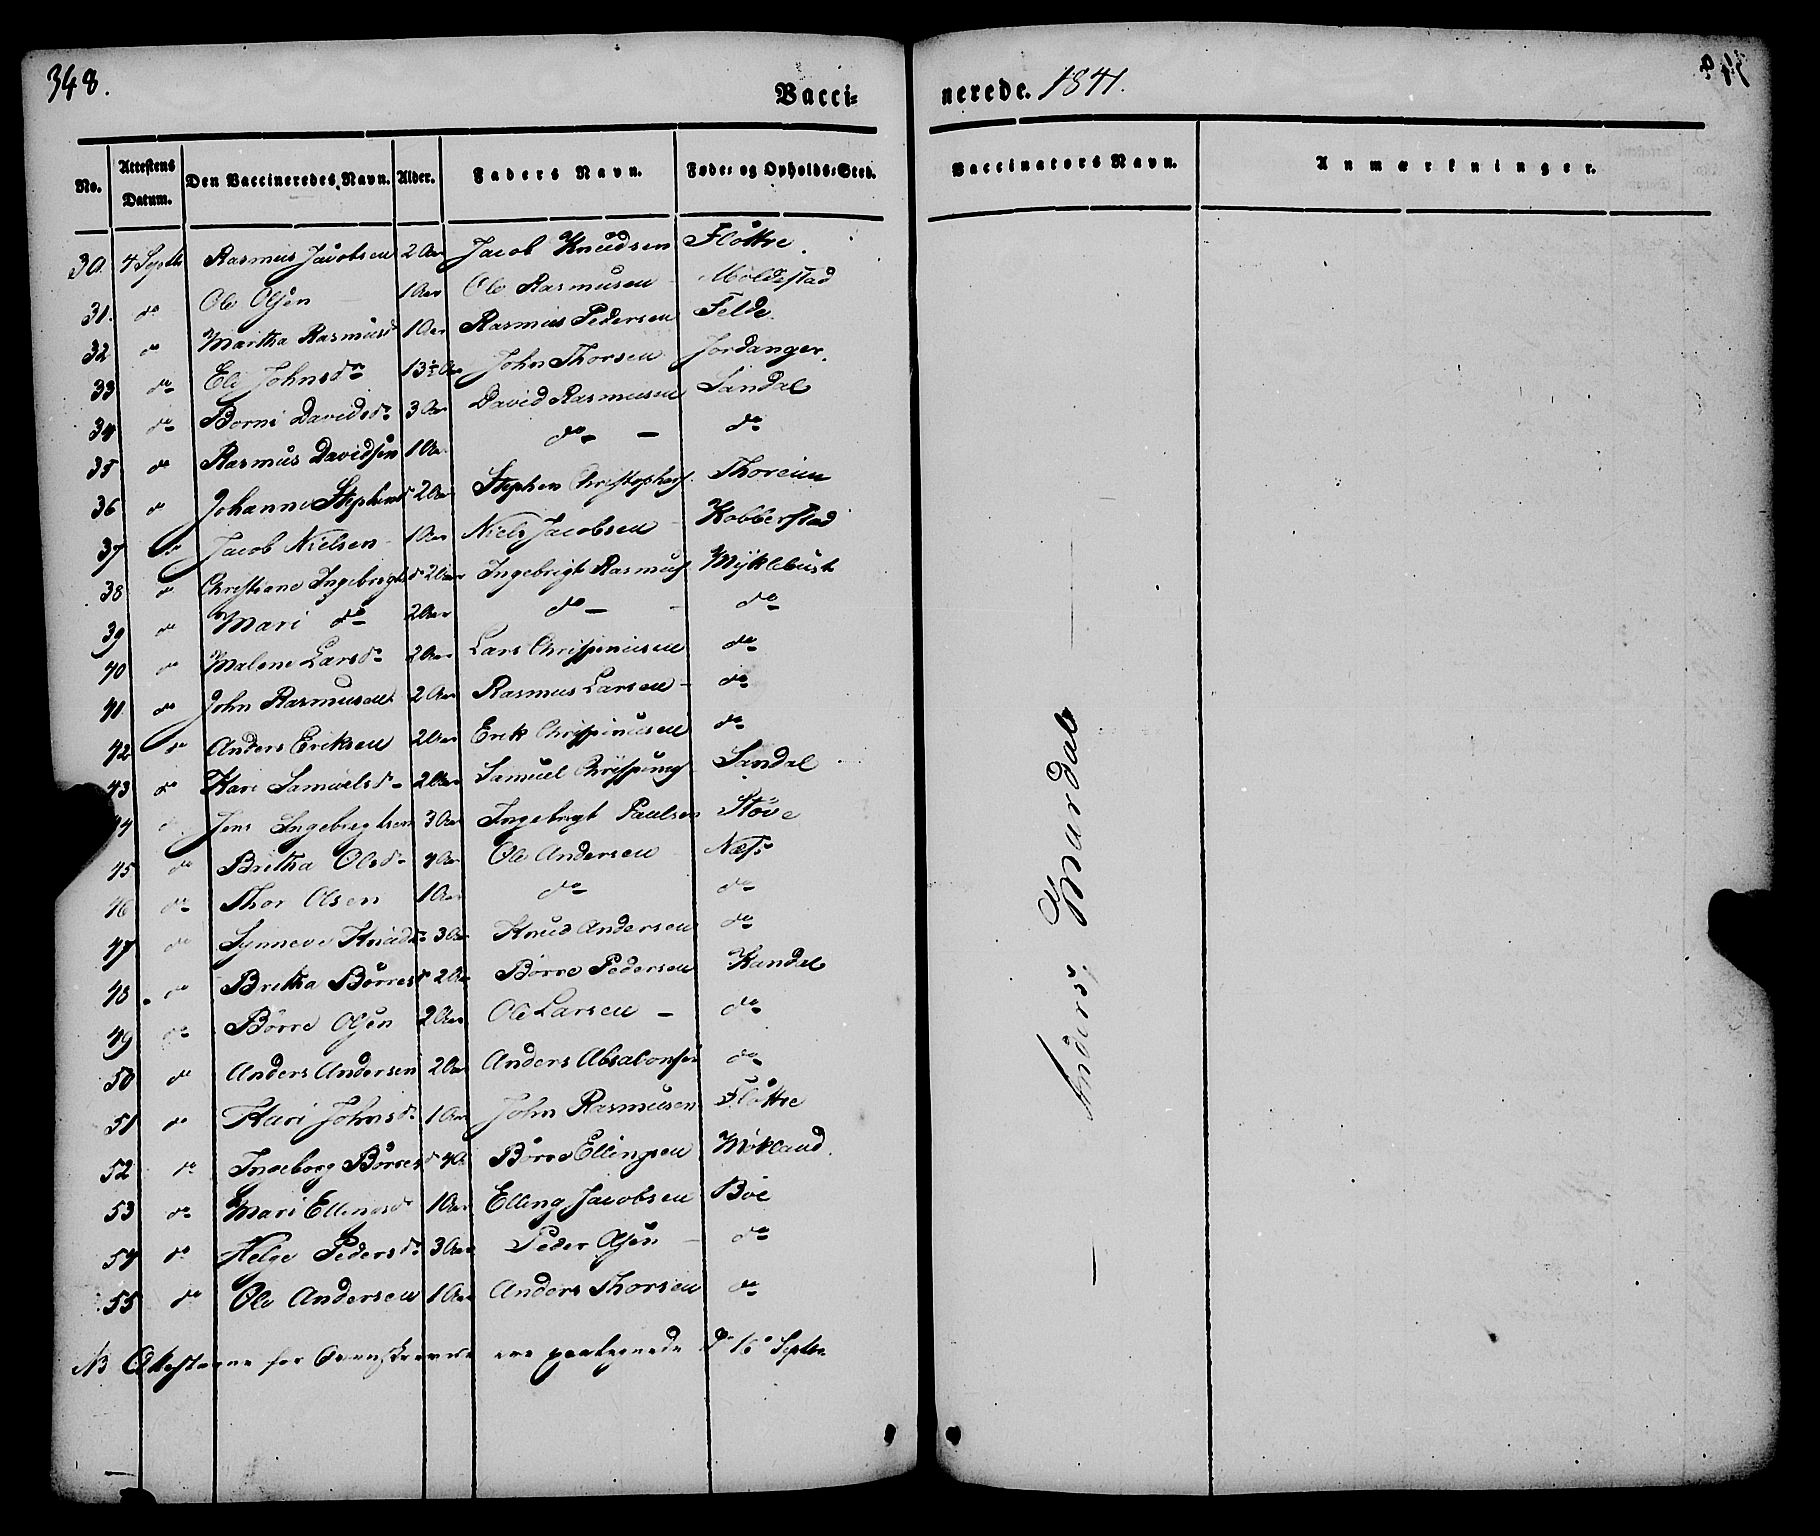 348.
Vacci-
nerede. 1841.
No. | Attestens Datum. | Den Vaccineredes Navn. | Alder. | Faders Navn. | Føde- og Opholds-Sted. | Vaccinators Navn. | Anmærkninger.
30. 4 Septb Rasmus Jacobsen 2 Aar Jacob Knudsen Fløttre.
31. do Ole Olsen 1 Aar Ole Rasmusen Moldestad
32 do Martha Rasmusd 1 Aar Rasmus Pedersen Felde.
33 do Eli Johnsdr 13½ Aar John Thorsen Jordanger.
34 do Borni Davidsdr 3 Aar David Rasmusen Sandal
35 do Rasmus Davidsen 1 Aar do — do
36 do Johanne Stephensd 2 Aar Stephen Christophers. Thoreim
37 do Jacob Nielsen 1 Aar Niels Jacobsen Kobberstad
38 do Christiane Ingebrigtsdr 2 Aar Ingebrigt Rasmus Myklebust
39 do Mari do 2 Aar do — do
40 do Malene Larsdr 2 Aar Lars Chrispinusen do
41 do John Rasmusen 2 Aar Rasmus Larsen do
42 do Anders Eriksen 2 Aar Erik Chrispinusen do
43 do Kari Samuelsdr 2 Aar Samuel Chrispinus Sandal
44 do Jens Ingebrigtsen 3 Aar Ingebrigt Paulsen Støve
45 do Britha Olsdr 4 Aar Ole Andersen Næss
46 do Thor Olsen 1 Aar do do
47 do Synneve Knudsdr 3 Aar Knud Andersen do
48 do Britha Børresdr 2 Aar Børre Pedersen Kandal
49 do Børre Olsen 2 Aar Ole Larsen — do
50 do Anders Andersen 2 Aar Anders Absalonsen do
51 do Kari Johnsdr 1 Aar John Rasmusen Fløttre
52 do Ingeborg Børresd 4 A Børre Ellingsen Mokland.
53 do Mari Ellingsdr 1 Aar Elling Jacobsen Bøe
54 do Helge Pedersdr 3 Aar Peder Olsen do
55 do Ole Andersen 1 Aar Anders Thorsen do
NB Attesterne for Ovenskrevne ere paategnede d 16 Septbr
— Anders Maardal —